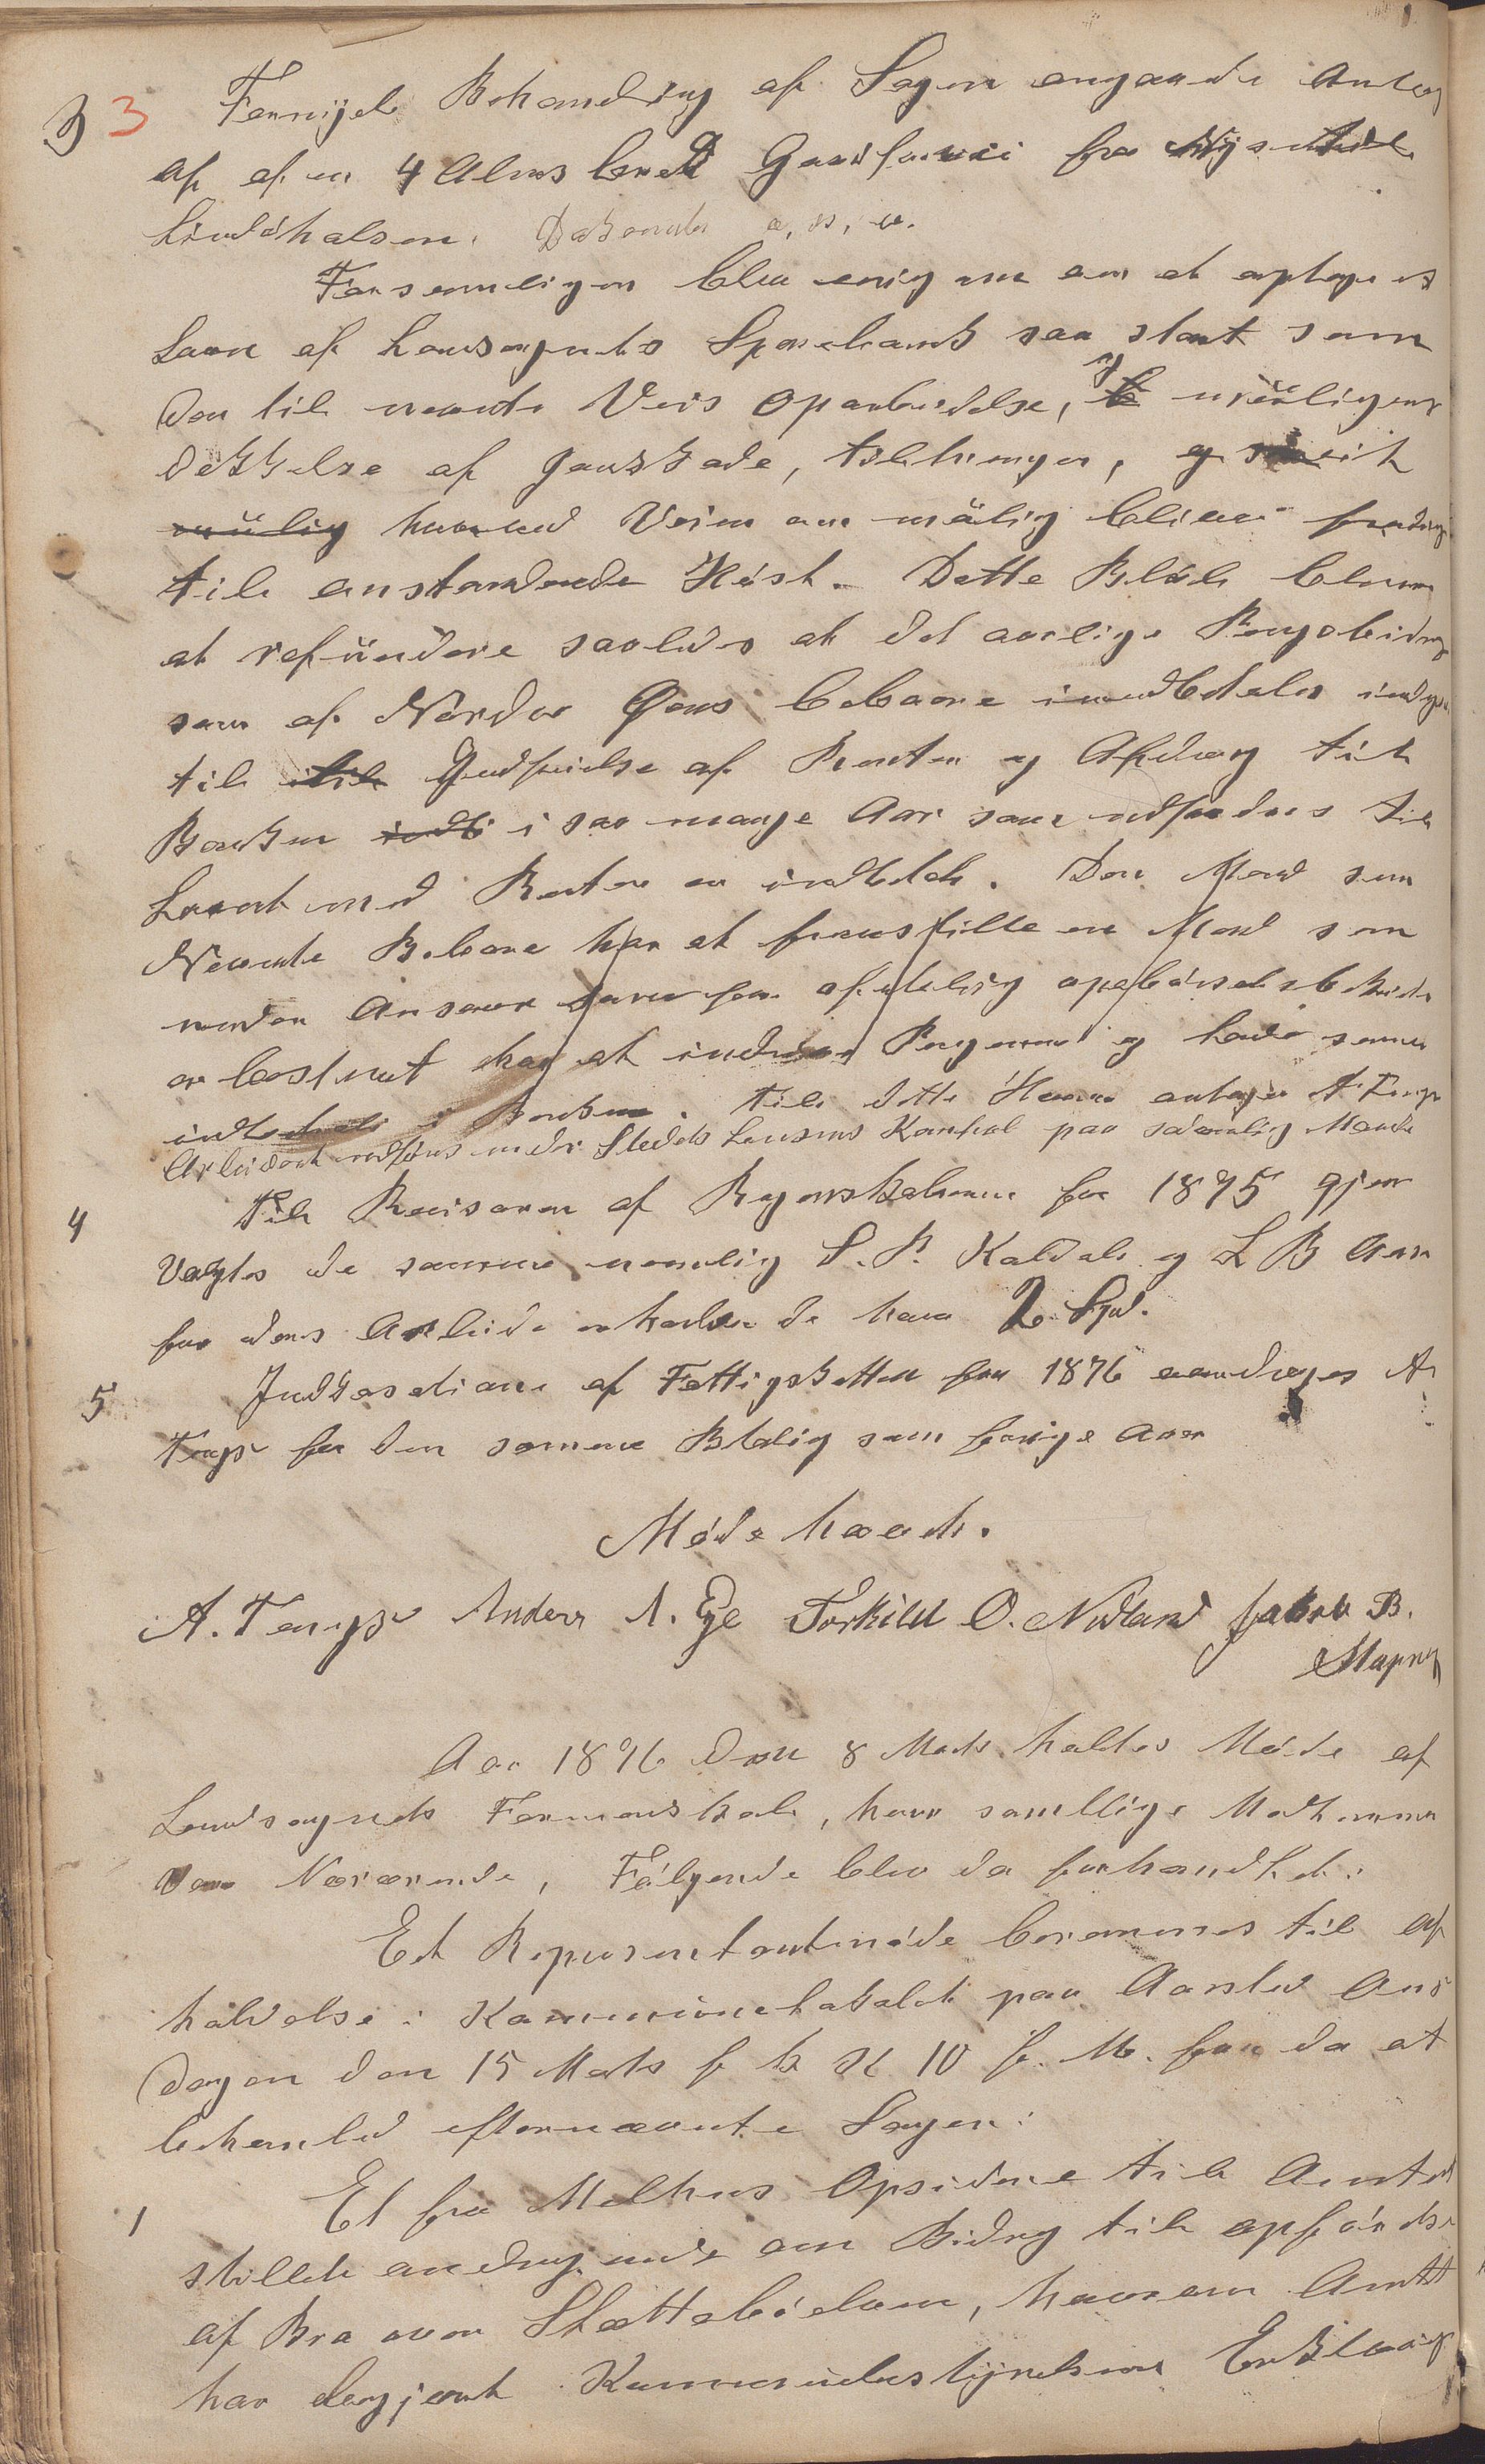 3 3 Fornyet Behandling af Sagen angaaende Anlæg
af af en 4 Alens bred Gaardsvei fra
Lindshalsen. Dokonnter o, s, v.
Forsamligen blev enig om am at optage et
Laan af Landsognets Sparebank saa stort som
den til nævnte Veis oparbeidelse, og muligens
dekkelse af Jordskade, tiltrenges, og
mulig hvorved Veien om mulig bliver færdig
til anstundende Høst. Dette Beløb bliver
at refundere saaledes at det aarlige Pengebidrag
som af Nordre Qens beboere indbetales indgaar
til til Godtjørelse af Renter og Afdrag til
Banken i saa mange Aar som udfordres til
Laanet med Renter er indbetalt. Den Mand som
Nevnte Beboere har at fremstille en Mand som
under Ansvar
er bestemt har at inddrive Pengerne og lade samme
indbetale i Banken. Til dette Hverv antages A Tengs
Arbeidet udføres under Stedets Lensmans Kontrol paa sedvanlig Maade
4 Til Revisorer af Regnskaberne for 1875 gjen
valgtes de samme nemlig S. P. Kaldal og L B Aase
for deres Arbeide erholder de hver 2 Spd.
5 Indkasationen af Fattigskatten for 1876 overdrages A
Tengs for den samme Betaling som forrige Aar
Møde hævet.
A. Tengs Anders A. Eje Torkild O. Nedland Jakob B.
Maping
Aar 1876 den 8 Marts holdtes Møde af
Landsognets Formanskab, hvor samtlige Medlemmer
vare Nærværende, Følgende blev da forhandlet:
Et Repræsentantmøde berammes til af
holdelse i Kommunelokalet paa Aarstad Ons
dagen den 15 Marts f k Kl 10 f. M. for da at
behandle efternævnte Sager:
1 Et fra Melhus Opsidere til Amtet
stillet andragende om Bidrag til opførelse
af Bro over Slettebøelven, hvorom Amtet
har begjært Kommunebestyrelsens Erklæring